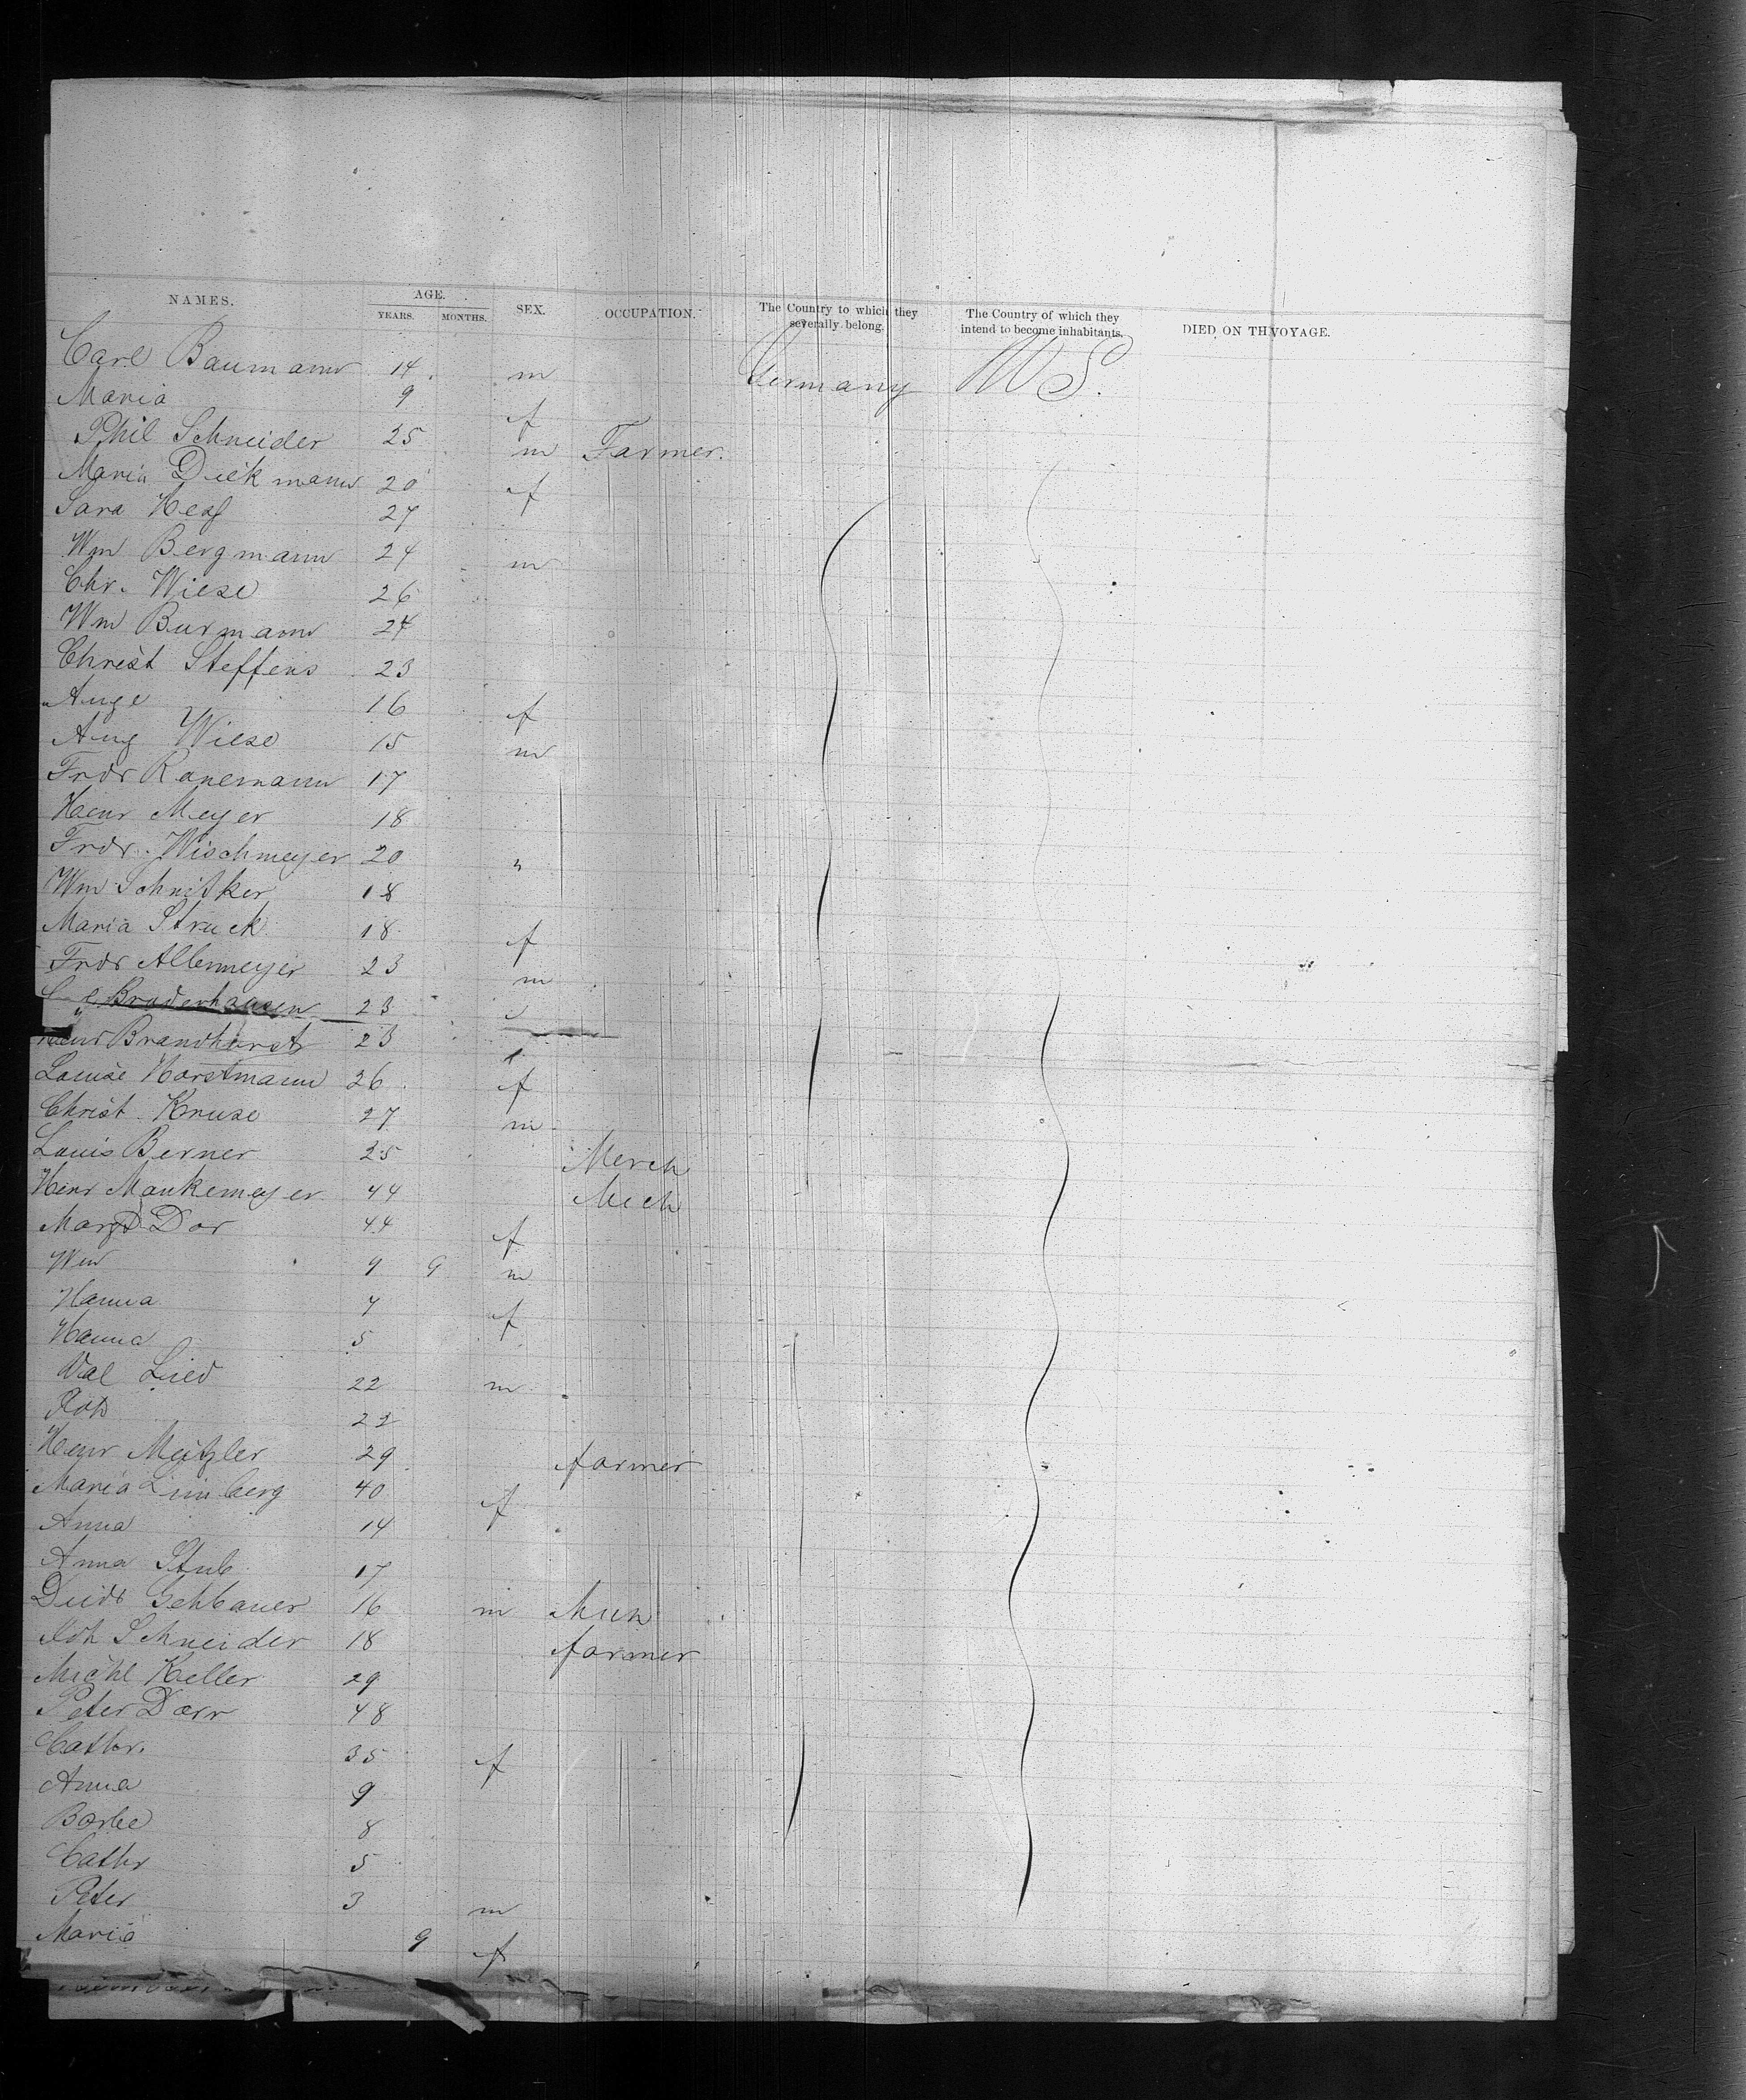 NAMES. AGE. YEARS. MONTHS. SEX. OCCUPATION. The Country to which they severally belong. The Country of which they intend to become inhabitants. DIED ON TH VOYAGE.
Carl Baumann 14 m Germany U S.
Maria 9 f
Phil Schneider 25 m Farmer.
Maria Diekmann 20 f
Sara 27
Wm Bergmann 24 m
Chr. Wiese 26
Wm Burmann 24
Christ Steffens 23
Auge 16 f
Aug Wiese 15 m
Fredr Ranemann 17
Heinr Meyer 18
Fredr. Wischmeyer 20 "
Wm Schnitker 18
Maria Struck 18 f
Fredr Allenmeyer 23 m
Bruderhausen 23
Heinr Brandhorst 23
Louise Horstmann 26 f
Christ Kruse 27 m
Louis Berner 25 Merch
Heinr Mankemeyer 44 Mech
Margt Dor 44 f
Wm 9 9 m
Hanna 7 f
Hanna 5
Val Lied 22 m
Rob 22
Heinr Meitzler 29 farmer
Maria Limberg 40 f
Anna 14
Anna Stub 17
Gehbauer 16 m
Joh Schneider 18 farmer
Michl Keller 29
Peter Dorr 48
Cathr. 35 f
Anna 9
Barbe 8
Cathr 5
Peter 3 m
Maria 9 f